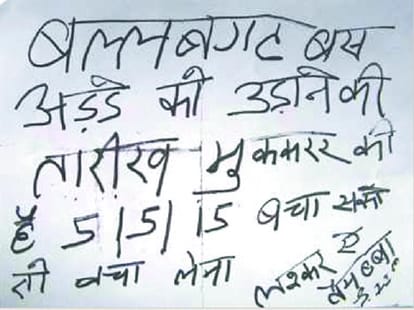 बल्लबगढ बस
अड्डे को उड़ाने की
तारीख मुककरर की
हैं 5/5/15 बचा सको
तो बचा लेना
लश्कर ए